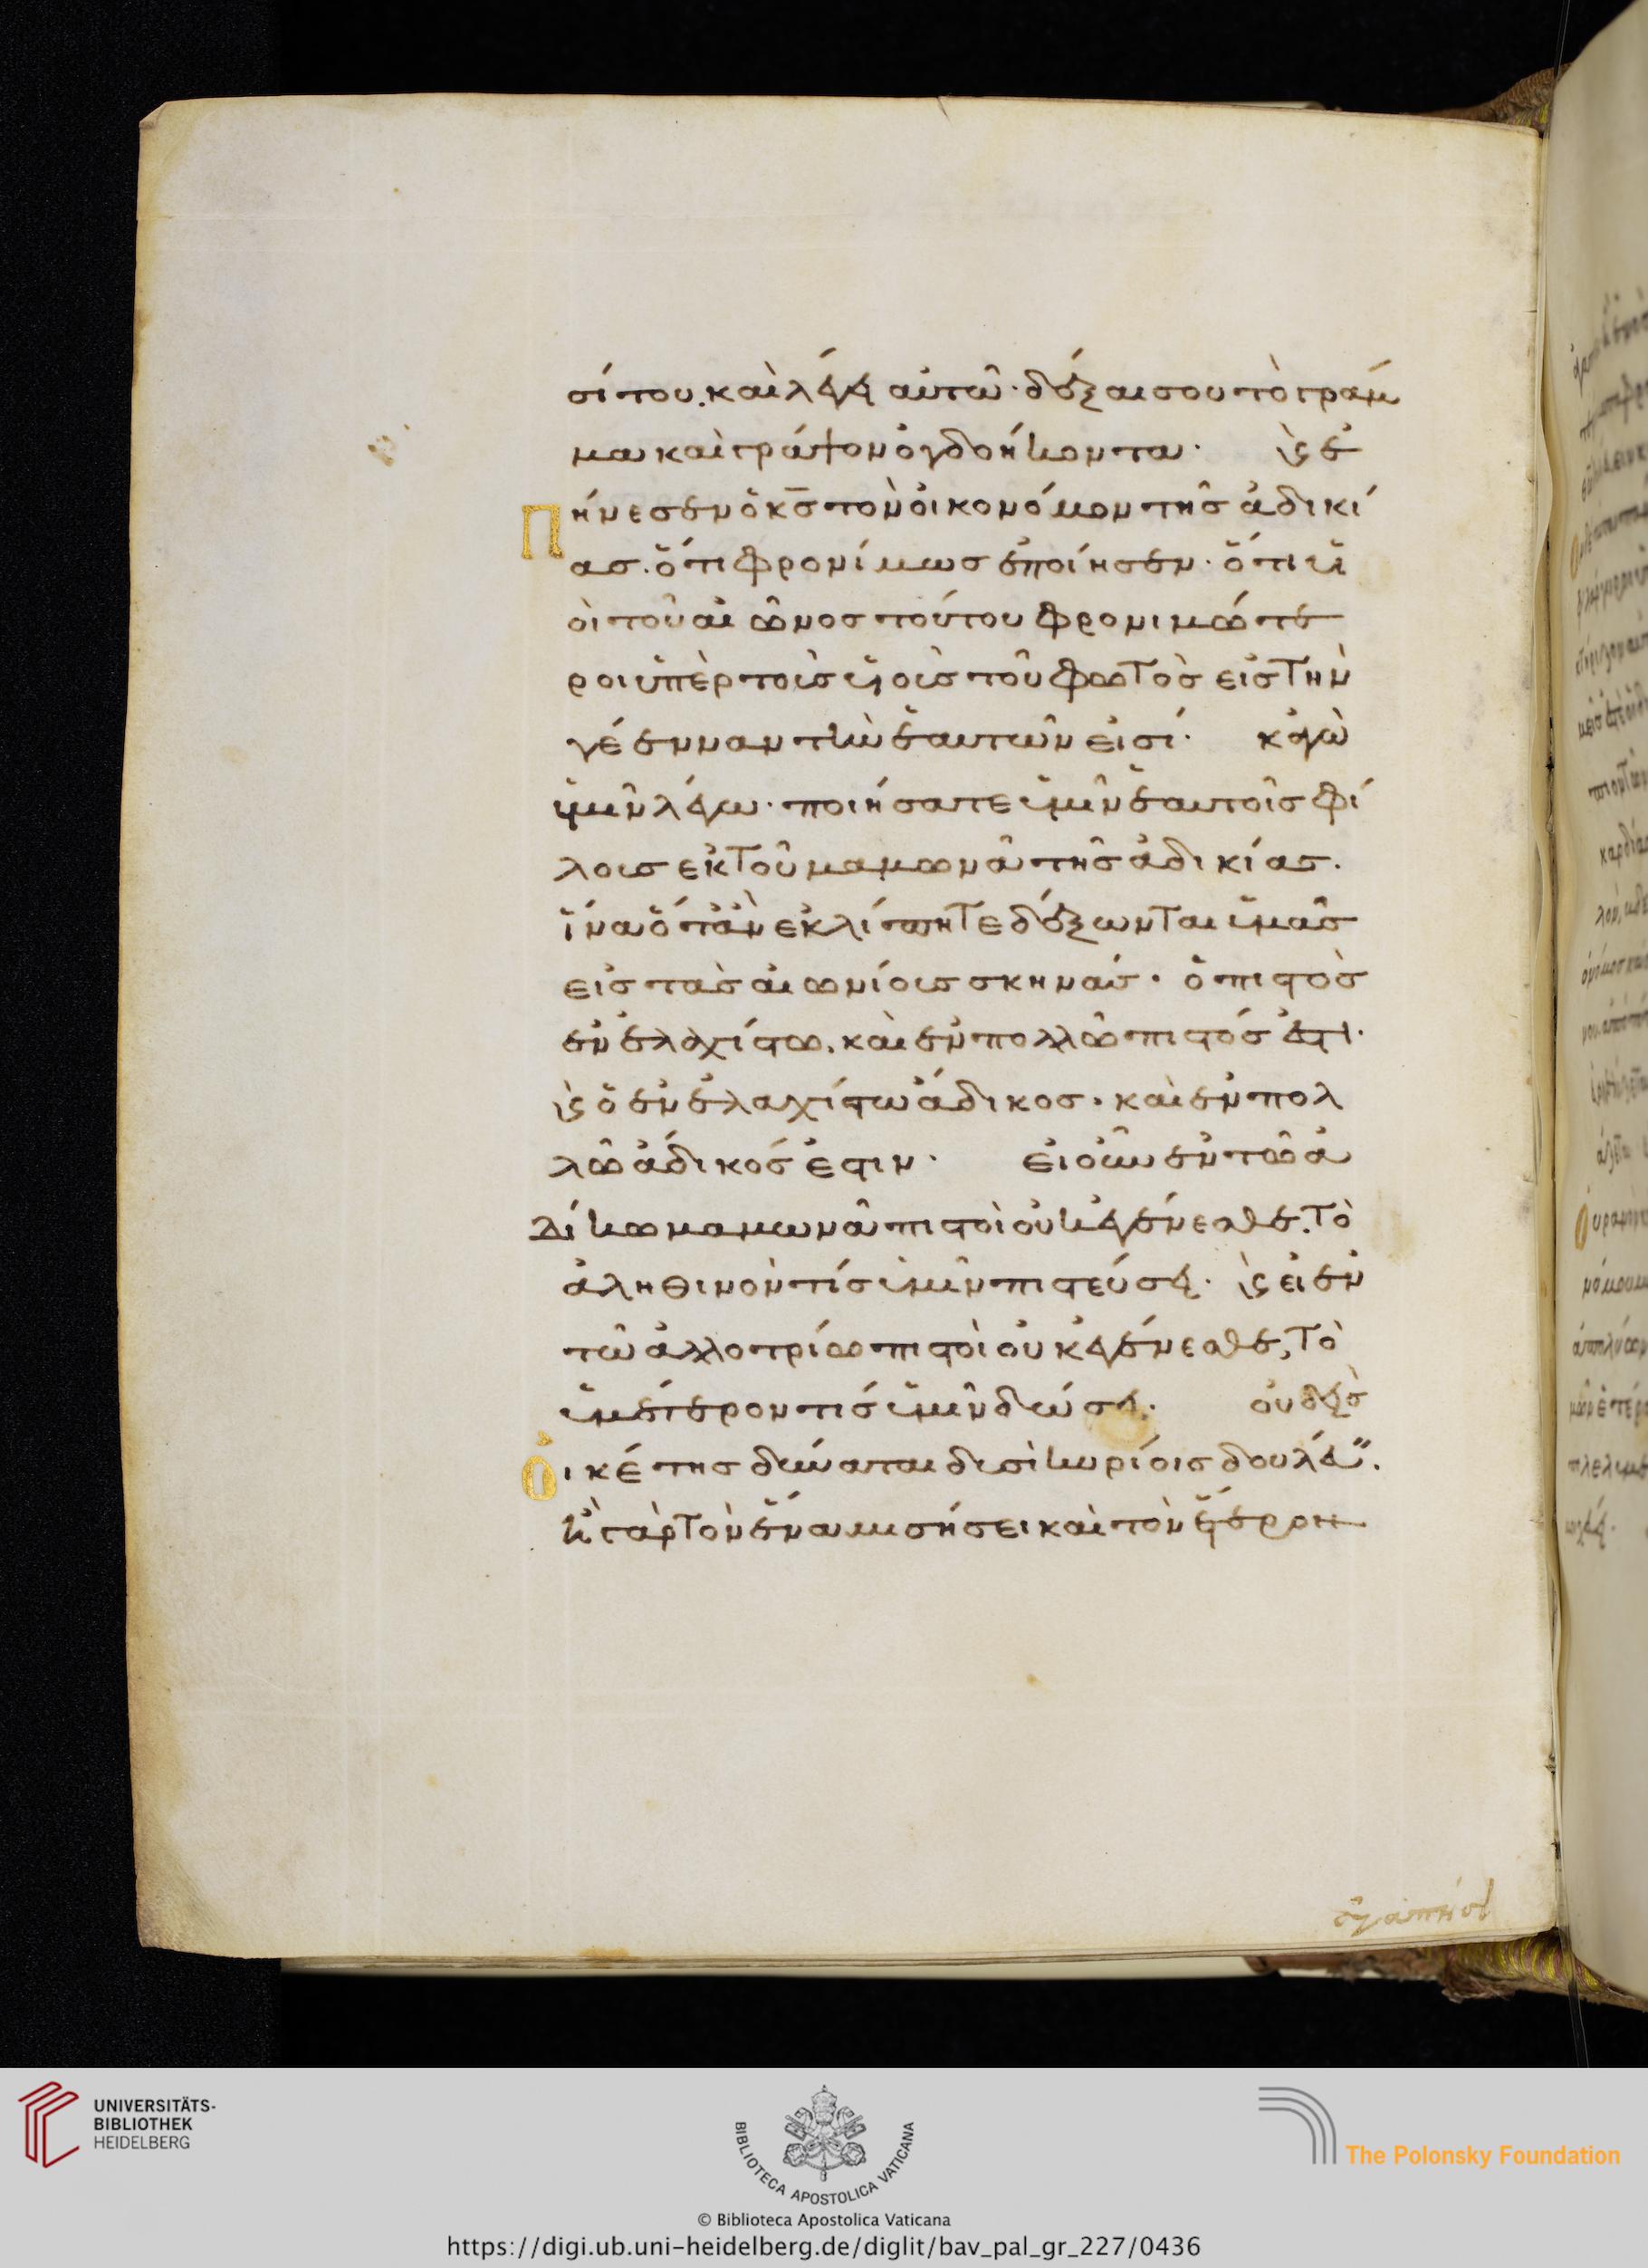 σίτου. καὶ λέγει αὐτῶ· δέξαι σου τὸ γράμ
μα καὶ γράψον ὀγδοήκοντα· ϗ ἐ
πήνεσεν ὁ κ̅σ̅ τὸν οἰκονόμον τῆς ἀδικί
ας. ὅτι φρονίμως ἐποίησεν· ὅτι υἱ
οὶ τοῦ αἰῶνος τούτου φρονιμώτε
ροι ὑπὲρ τοὺς υἱοὺς τοῦ φωτὸς εἰς τὴν
γενεὰν τὴν ἑαυτῶν εἰσί· κἀγὼ
ὑμῖν λέγω· ποιήσατε ὑμῖν ἑαυτοῖς φί
λους ἐκ τοῦ μαμωνᾶ τῆς ἀδικίας.
ἵνα ὅταν ἐκλίπητε δέξωνται ὑμᾶς
εἰς τὰς αἰωνίους σκηνάς· ὁ πιστὸς
ἐν ἐλαχίστω. καὶ ἐν πολλῶ πιστός ἐστι·
ϗ ὁ ἐν ἐλαχίστω ἄδικος· καὶ ἐν πολ
λῶ ἄδικός ἐστιν· εἰ οὖν ἐν τῶ ἀ
δίκω μαμωνᾶ πιστοὶ οὐκ ἐγένεσθε. τὸ
ἀληθινὸν τίς ὑμῖν πιστεύσει· ϗ εἰ ἐν
τῶ ἀλλοτρίω πιστοὶ οὐκ ἐγένεσθε, τὸ
ὑμέτερον τίς ὑμῖν δώσει· οὐδεὶς
οἰκέτης δύναται δυσὶ κυρίοις δουλεύειν.
ἢ γὰρ τὸν ἕνα μισήσει καὶ τὸν ἕτερον
ἀγαπήσει
UNIVERSITÄTS-
BIBLIOTHEK
HEIDELBERG
BIBLIOTECA APOSTOLICA VATICANA
The Polonsky Foundation
© Biblioteca Apostolica Vaticana
https://digi.ub.uni-heidelberg.de/diglit/bav_pal_gr_227/0436